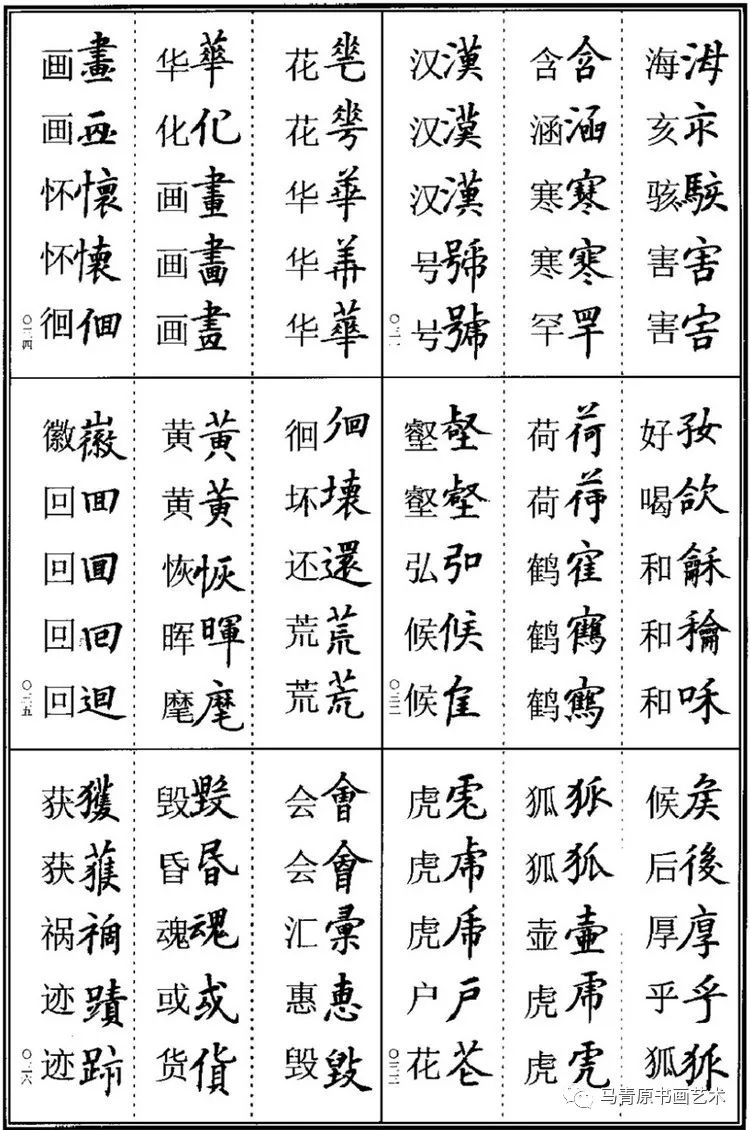 海海 亥亥 骇駭 害害 害害
含含 涵涵 寒寒 寒寒 罕罕
汉漢 汉漢 汉漢 号號 号號
〇三一
好好 喝欱 和龢 和龢 和咊
荷荷 荷荷 鹤隺 鹤鶴 鹤鶴
壑壑 壑壑 弘弘 候候 候隹
〇三二
候矦 后後 厚厚 乎乎 狐狐
狐狐 狐狐 壶壷 虎虎 虎虎
虎虎 虎虎 虎虎 户戶 花苍
〇三三
花花 花花 华華 华華 华華
华華 化化 画畫 画畫 画畫
画畫 画画 怀懷 怀懐 徊佪
〇三四
徊徊 坏壊 还還 荒荒 荒荒
黄黄 黄黃 恢恢 晖暉 麾麾
徽徽 回囬 回囬 回回 回迴
〇三五
会會 会會 汇彙 惠恵 毁毀
毁毀 昏昬 魂魂 或或 货貨
获獲 获蒦 祸禍 迹蹟 迹跡
〇三六
马青原书画艺术